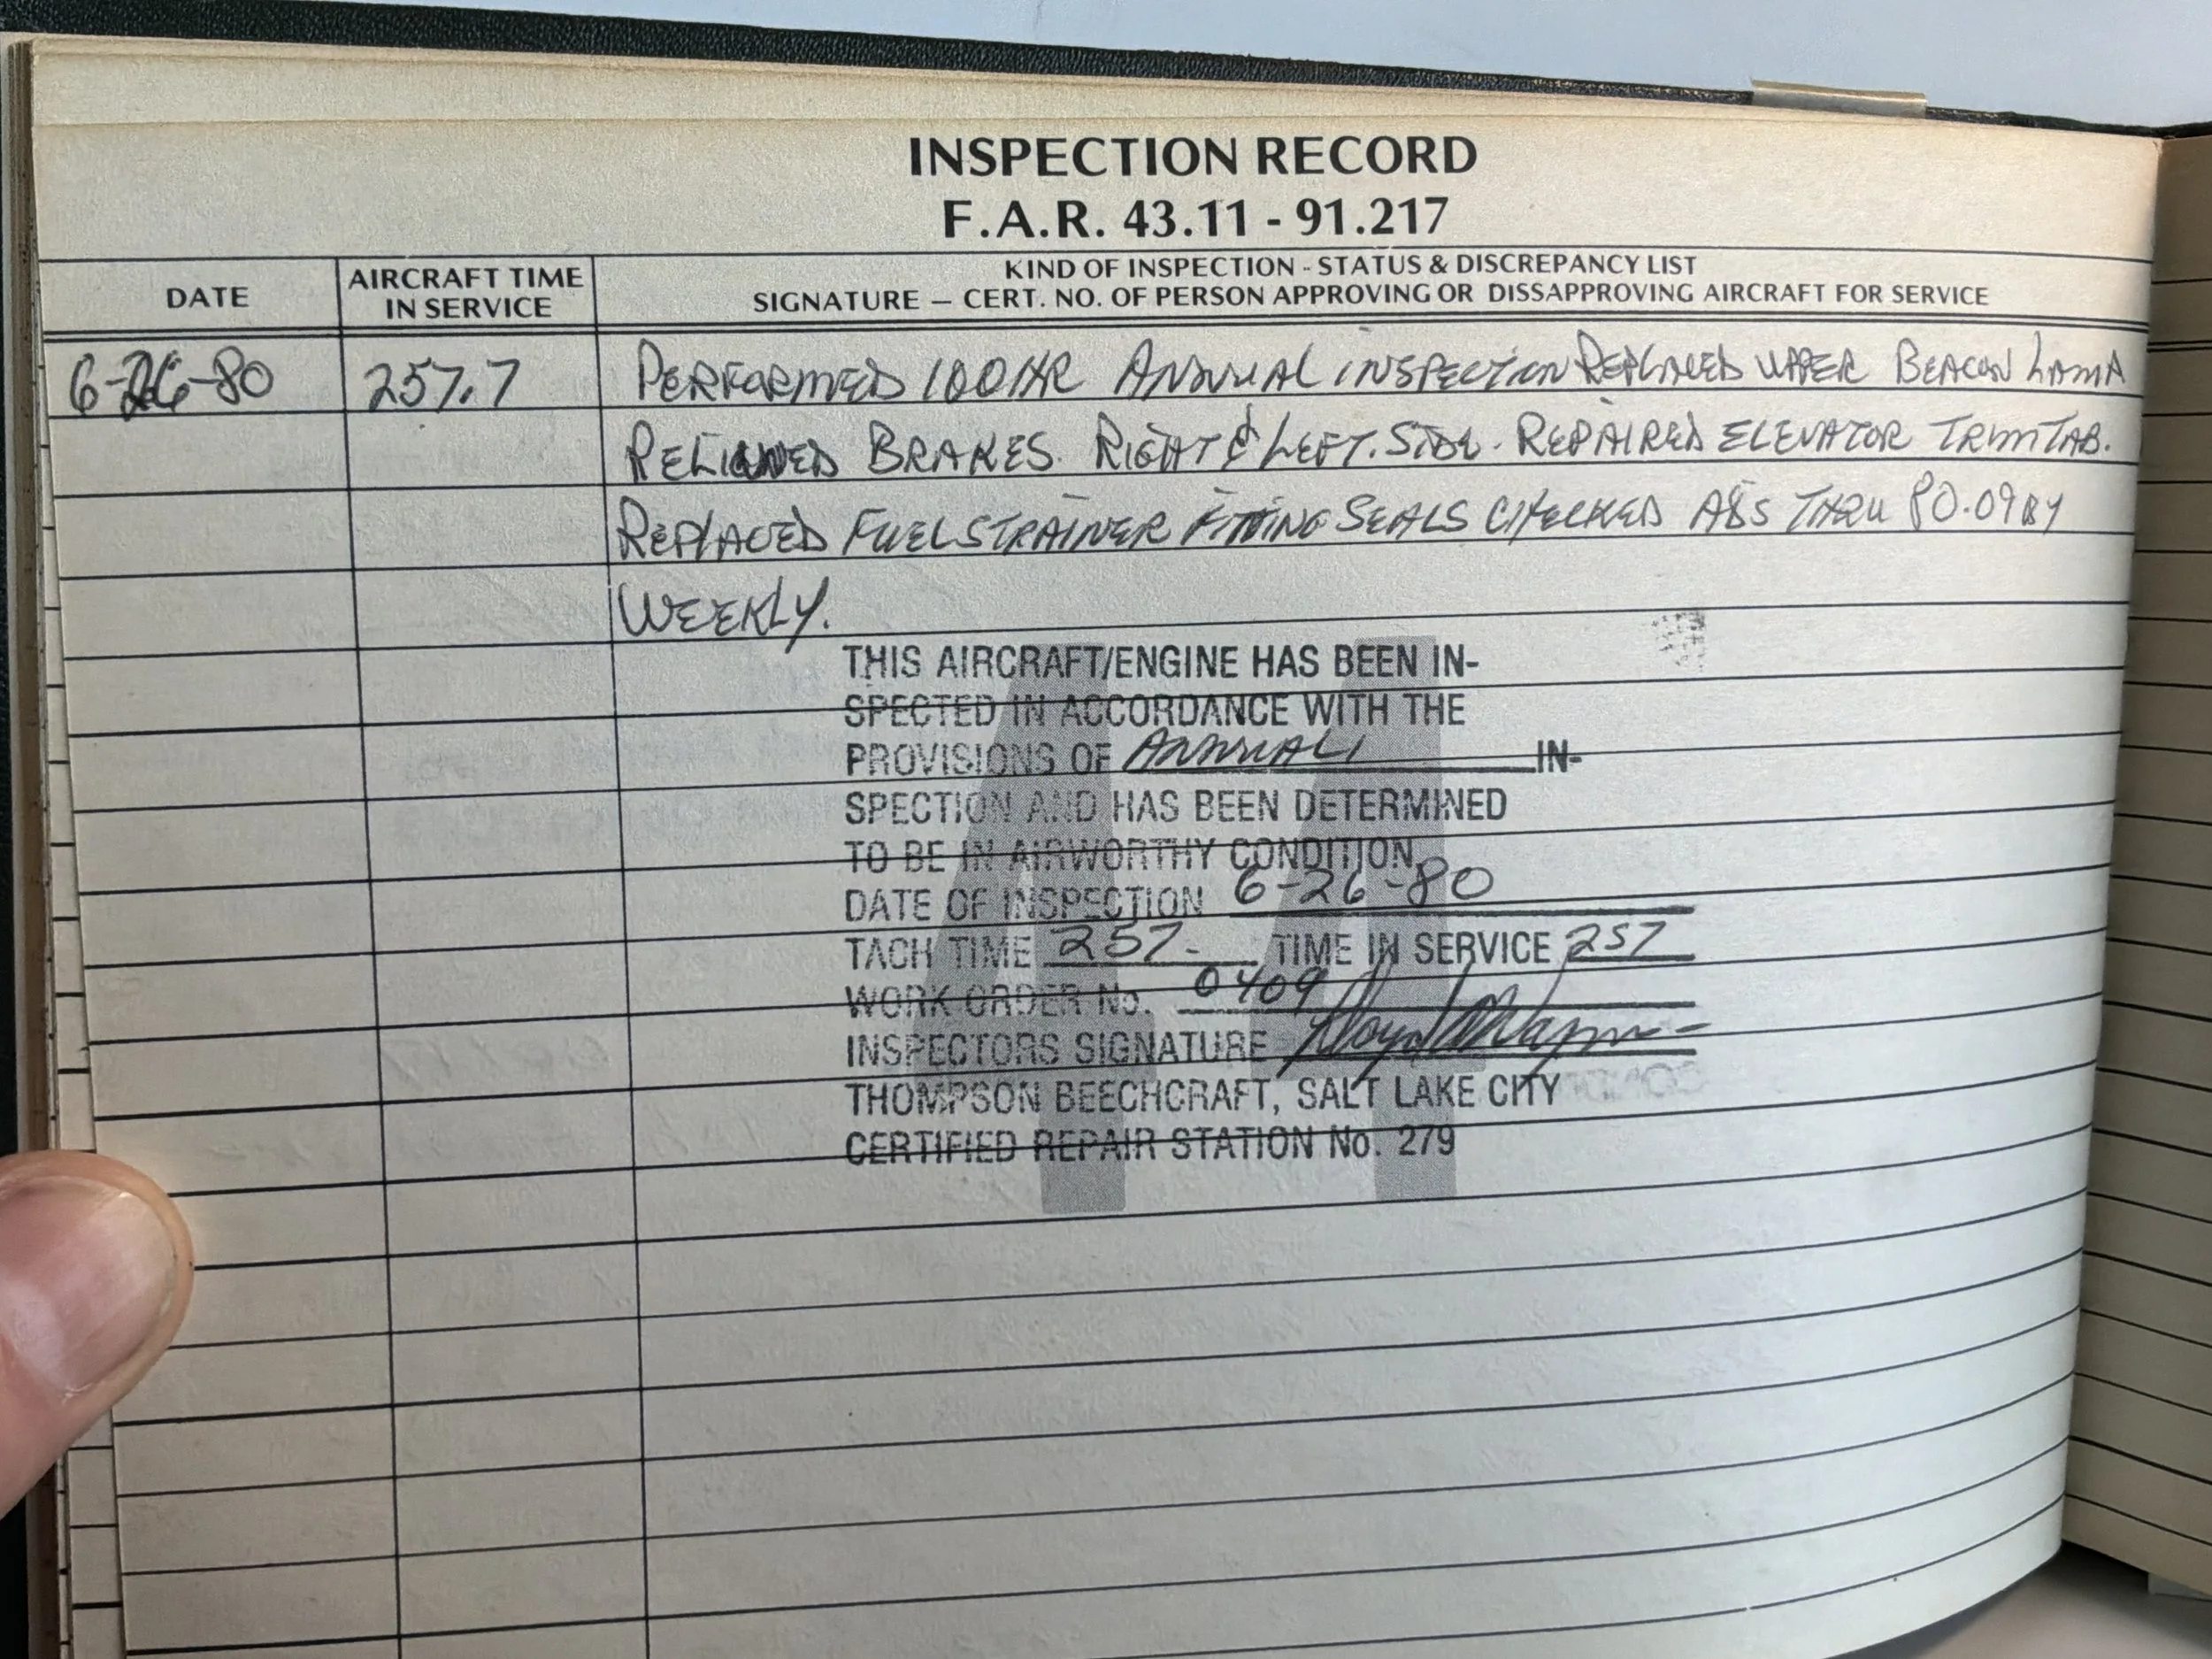 INSPECTION RECORD
F.A.R. 43.11 - 91.217
DATE
AIRCRAFT TIME
IN SERVICE
KIND OF INSPECTION - STATUS & DISCREPANCY LIST
SIGNATURE — CERT. NO. OF PERSON APPROVING OR DISSAPPROVING AIRCRAFT FOR SERVICE
6-26-80 257.7 PERFORMED 100 HR ANNUAL INSPECTION REPLACED UPPER BEACON LAMP
RELIGNED BRAKES. RIGHT & LEFT. SIDE. REPAIRED ELEVATOR TRIM TAB.
REPLACED FUEL STRAINER FITTING SEALS CHECKED A&S THRU 80.09 BY
WEEKLY.
THIS AIRCRAFT/ENGINE HAS BEEN IN-
SPECTED IN ACCORDANCE WITH THE
PROVISIONS OF ANNUAL IN-
SPECTION AND HAS BEEN DETERMINED
TO BE IN AIRWORTHY CONDITION.
DATE OF INSPECTION 6-26-80
TACH TIME 257- TIME IN SERVICE 257
WORK ORDER No. 0409
INSPECTORS SIGNATURE
THOMPSON BEECHCRAFT, SALT LAKE CITY
CERTIFIED REPAIR STATION No. 279